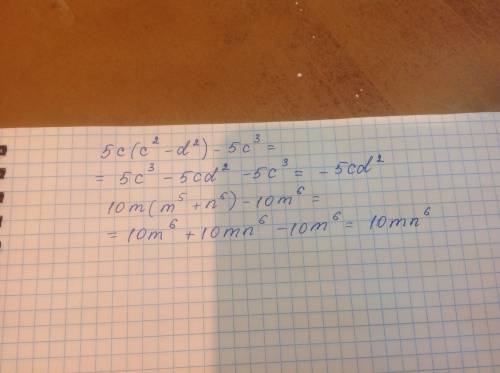 5c(c² - d²) - 5c³ =
= 5c³ - 5cd² - 5c³ = - 5cd²
10m(m⁵ + n⁶) - 10m⁶ =
= 10m⁶ + 10mn⁶ - 10m⁶ = 10mn⁶